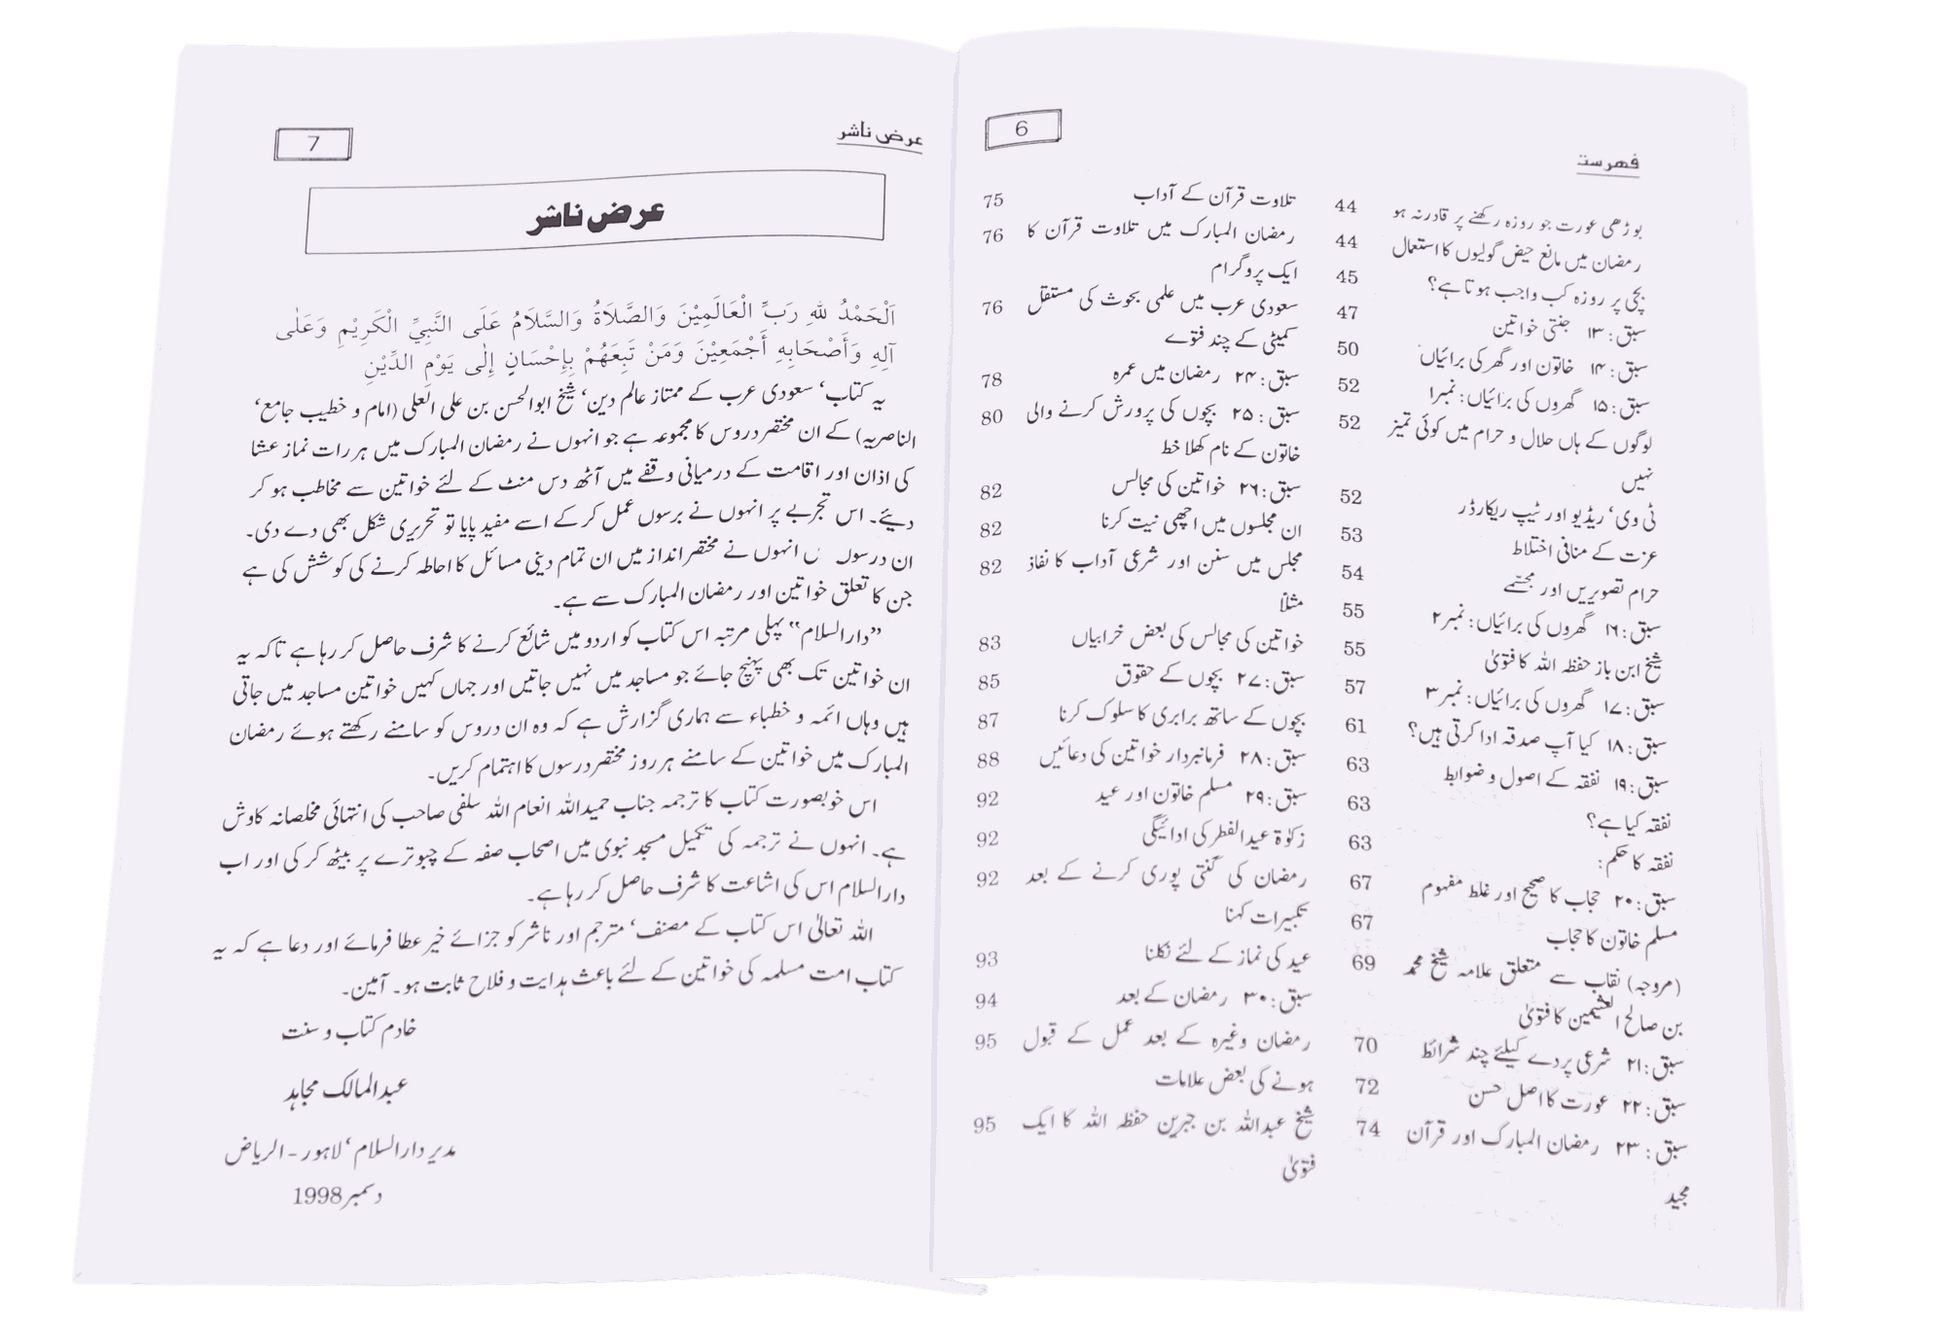 فهرست
6
بوڑھی عورت جو روزہ رکھنے پر قادر نہ ہو 44
رمضان میں مانع حیض گولیوں کا استعمال 44
بچی پر روزہ کب واجب ہوتا ہے؟ 45
سبق: ۱۳ جنتی خواتین 47
سبق: ۱۴ خاتون اور گھر کی برائیاں 50
سبق: ۱۵ گھروں کی برائیاں: نمبر۱ 52
لوگوں کے ہاں حلال و حرام میں کوئی تمیز 52
نہیں
ٹی وی‘ ریڈیو اور ٹیپ ریکارڈر 52
عزت کے منافی اختلاط 53
حرام تصویریں اور مجسّمے 54
سبق: ۱۶ گھروں کی برائیاں: نمبر۲ 55
شیخ ابن باز حفظہ اللہ کا فتویٰ 55
سبق: ۱۷ گھروں کی برائیاں: نمبر۳ 57
سبق: ۱۸ کیا آپ صدقہ ادا کرتی ہیں؟ 61
سبق: ۱۹ نفقہ کے اصول و ضوابط 63
نفقہ کیا ہے؟ 63
نفقہ کا حکم: 63
سبق: ۲۰ حجاب کا صحیح اور غلط مفہوم 67
مسلم خاتون کا حجاب 67
(مروجہ) نقاب سے متعلق علامہ شیخ محمد 69
بن صالح العثیمین کا فتویٰ
سبق: ۲۱ شرعی پردے کیلئے چند شرائط 70
سبق: ۲۲ عورت کا اصل حسن 72
سبق: ۲۳ رمضان المبارک اور قرآن 74
مجید
تلاوت قرآن کے آداب 75
رمضان المبارک میں تلاوت قرآن کا 76
ایک پروگرام
سعودی عرب میں علمی بحوث کی مستقل 76
کمیٹی کے چند فتوے
سبق: ۲۴ رمضان میں عمرہ 78
سبق: ۲۵ بچوں کی پرورش کرنے والی 80
خاتون کے نام کھلا خط
سبق: ۲۶ خواتین کی مجالس 82
ان مجلسوں میں اچھی نیت کرنا 82
مجلس میں سنن اور شرعی آداب کا نفاذ 82
مثلاً
خواتین کی مجالس کی بعض خرابیاں 83
سبق: ۲۷ بچوں کے حقوق 85
بچوں کے ساتھ برابری کا سلوک کرنا 87
سبق: ۲۸ فرمانبردار خواتین کی دعائیں 88
سبق: ۲۹ مسلم خاتون اور عید 92
زکوٰۃ عیدالفطر کی ادائیگی 92
رمضان کی گنتی پوری کرنے کے بعد 92
تکبیرات کہنا
عید کی نماز کے لئے نکلنا 93
سبق: ۳۰ رمضان کے بعد 94
رمضان وغیرہ کے بعد عمل کے قبول 95
ہونے کی بعض علامات
شیخ عبداللہ بن جبرین حفظہ اللہ کا ایک 95
فتویٰ
عرض ناشر
7
عرض ناشر
اَلْحَمْدُ للهِ رَبِّ الْعَالَمِيْنَ وَالصَّلَاةُ وَالسَّلَامُ عَلَى النَّبِيِّ الْكَرِيْمِ وَعَلٰى
آلِهِ وَأَصْحَابِهِ أَجْمَعِيْنَ وَمَنْ تَبِعَهُمْ بِإِحْسَانٍ إِلٰى يَوْمِ الدِّيْنِ
یہ کتاب‘ سعودی عرب کے ممتاز عالم دین‘ شیخ ابوالحسن بن علی العلی (امام و خطیب جامع‘
الناصریہ) کے ان مختصر دروس کا مجموعہ ہے جو انہوں نے رمضان المبارک میں ہر رات نماز عشا
کی اذان اور اقامت کے درمیانی وقفے میں آٹھ دس منٹ کے لئے خواتین سے مخاطب ہو کر
دیئے۔ اس تجربے پر انہوں نے برسوں عمل کر کے اسے مفید پایا تو تحریری شکل بھی دے دی۔
ان درسوں انہوں نے مختصر انداز میں ان تمام دینی مسائل کا احاطہ کرنے کی کوشش کی ہے
جن کا تعلق خواتین اور رمضان المبارک سے ہے۔
”دارالسلام“ پہلی مرتبہ اس کتاب کو اردو میں شائع کرنے کا شرف حاصل کر رہا ہے تاکہ یہ
ان خواتین تک بھی پہنچ جائے جو مساجد میں نہیں جاتیں اور جہاں کہیں خواتین مساجد میں جاتی
ہیں وہاں ائمہ و خطباء سے ہماری گزارش ہے کہ وہ ان دروس کو سامنے رکھتے ہوئے رمضان
المبارک میں خواتین کے سامنے ہر روز مختصر درسوں کا اہتمام کریں۔
اس خوبصورت کتاب کا ترجمہ جناب حمیداللہ انعام اللہ سلفی صاحب کی انتہائی مخلصانہ کاوش
ہے۔ انہوں نے ترجمہ کی تکمیل مسجد نبوی میں اصحاب صفہ کے چبوترے پر بیٹھ کر کی اور اب
دارالسلام اس کی اشاعت کا شرف حاصل کر رہا ہے۔
اللہ تعالیٰ اس کتاب کے مصنف‘ مترجم اور ناشر کو جزائے خیر عطا فرمائے اور دعا ہے کہ یہ
کتاب امت مسلمہ کی خواتین کے لئے باعث ہدایت و فلاح ثابت ہو۔ آمین۔
خادم کتاب و سنت
عبدالمالک مجاہد
مدیر دارالسلام‘ لاہور - الریاض
دسمبر 1998